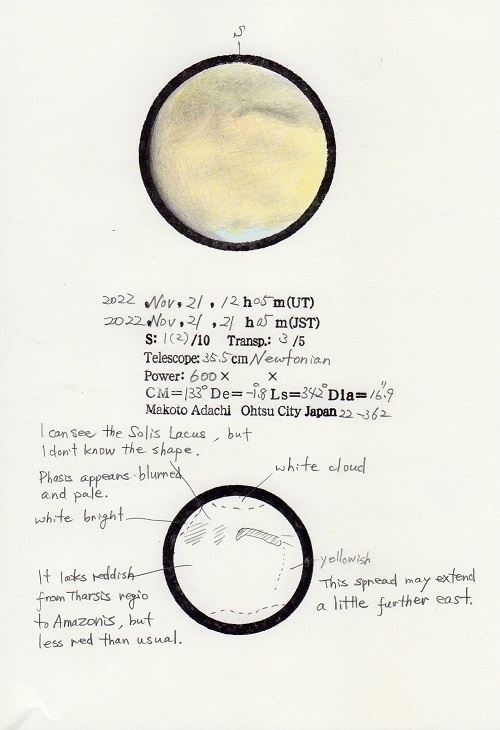 S
2022 Nov. 21, 12 h 05 m (UT)
2022 Nov. 21, 21 h 05 m (JST)
S: 1(2)/10 Transp.: 3/5
Telescope: 35.5 cm Newtonian
Power: 600× ×
CM=133° De=-1.8° Ls=342° Dia=16".9
Makoto Adachi Ohtsu City Japan 22-362
I can see the Solis Lacus, but
I don't know the shape.
Phasis appears blurred
and pale.
white cloud
white bright
yellowish
This spread may extend
a little further east.
It looks reddish
from Tharsis regio
to Amazonis, but
less red than usual.